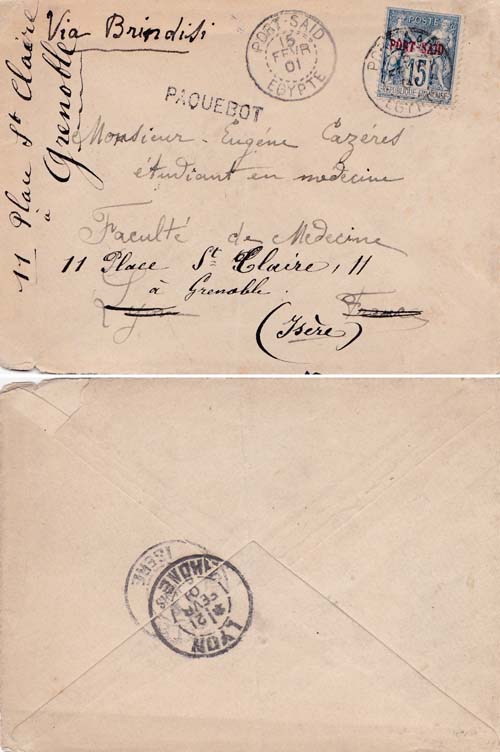 Via Brindisi
11 Place St Claire
à
Grenoble
PORT-SAID
15
FEVR
01
EGYPTE
POSTE
PORT-SAID
15
REPUBLIQUE FRANCAISE
EGYPTE
PAQUEBOT
Monsieur Eugéne Cazéres
étudiant en medecine
Faculté de Medecine
11 Place St Claire, 11
à Grenoble.
Lyon France
(Isère)
ISERE
RHONE
21
FEVR
01
LYON